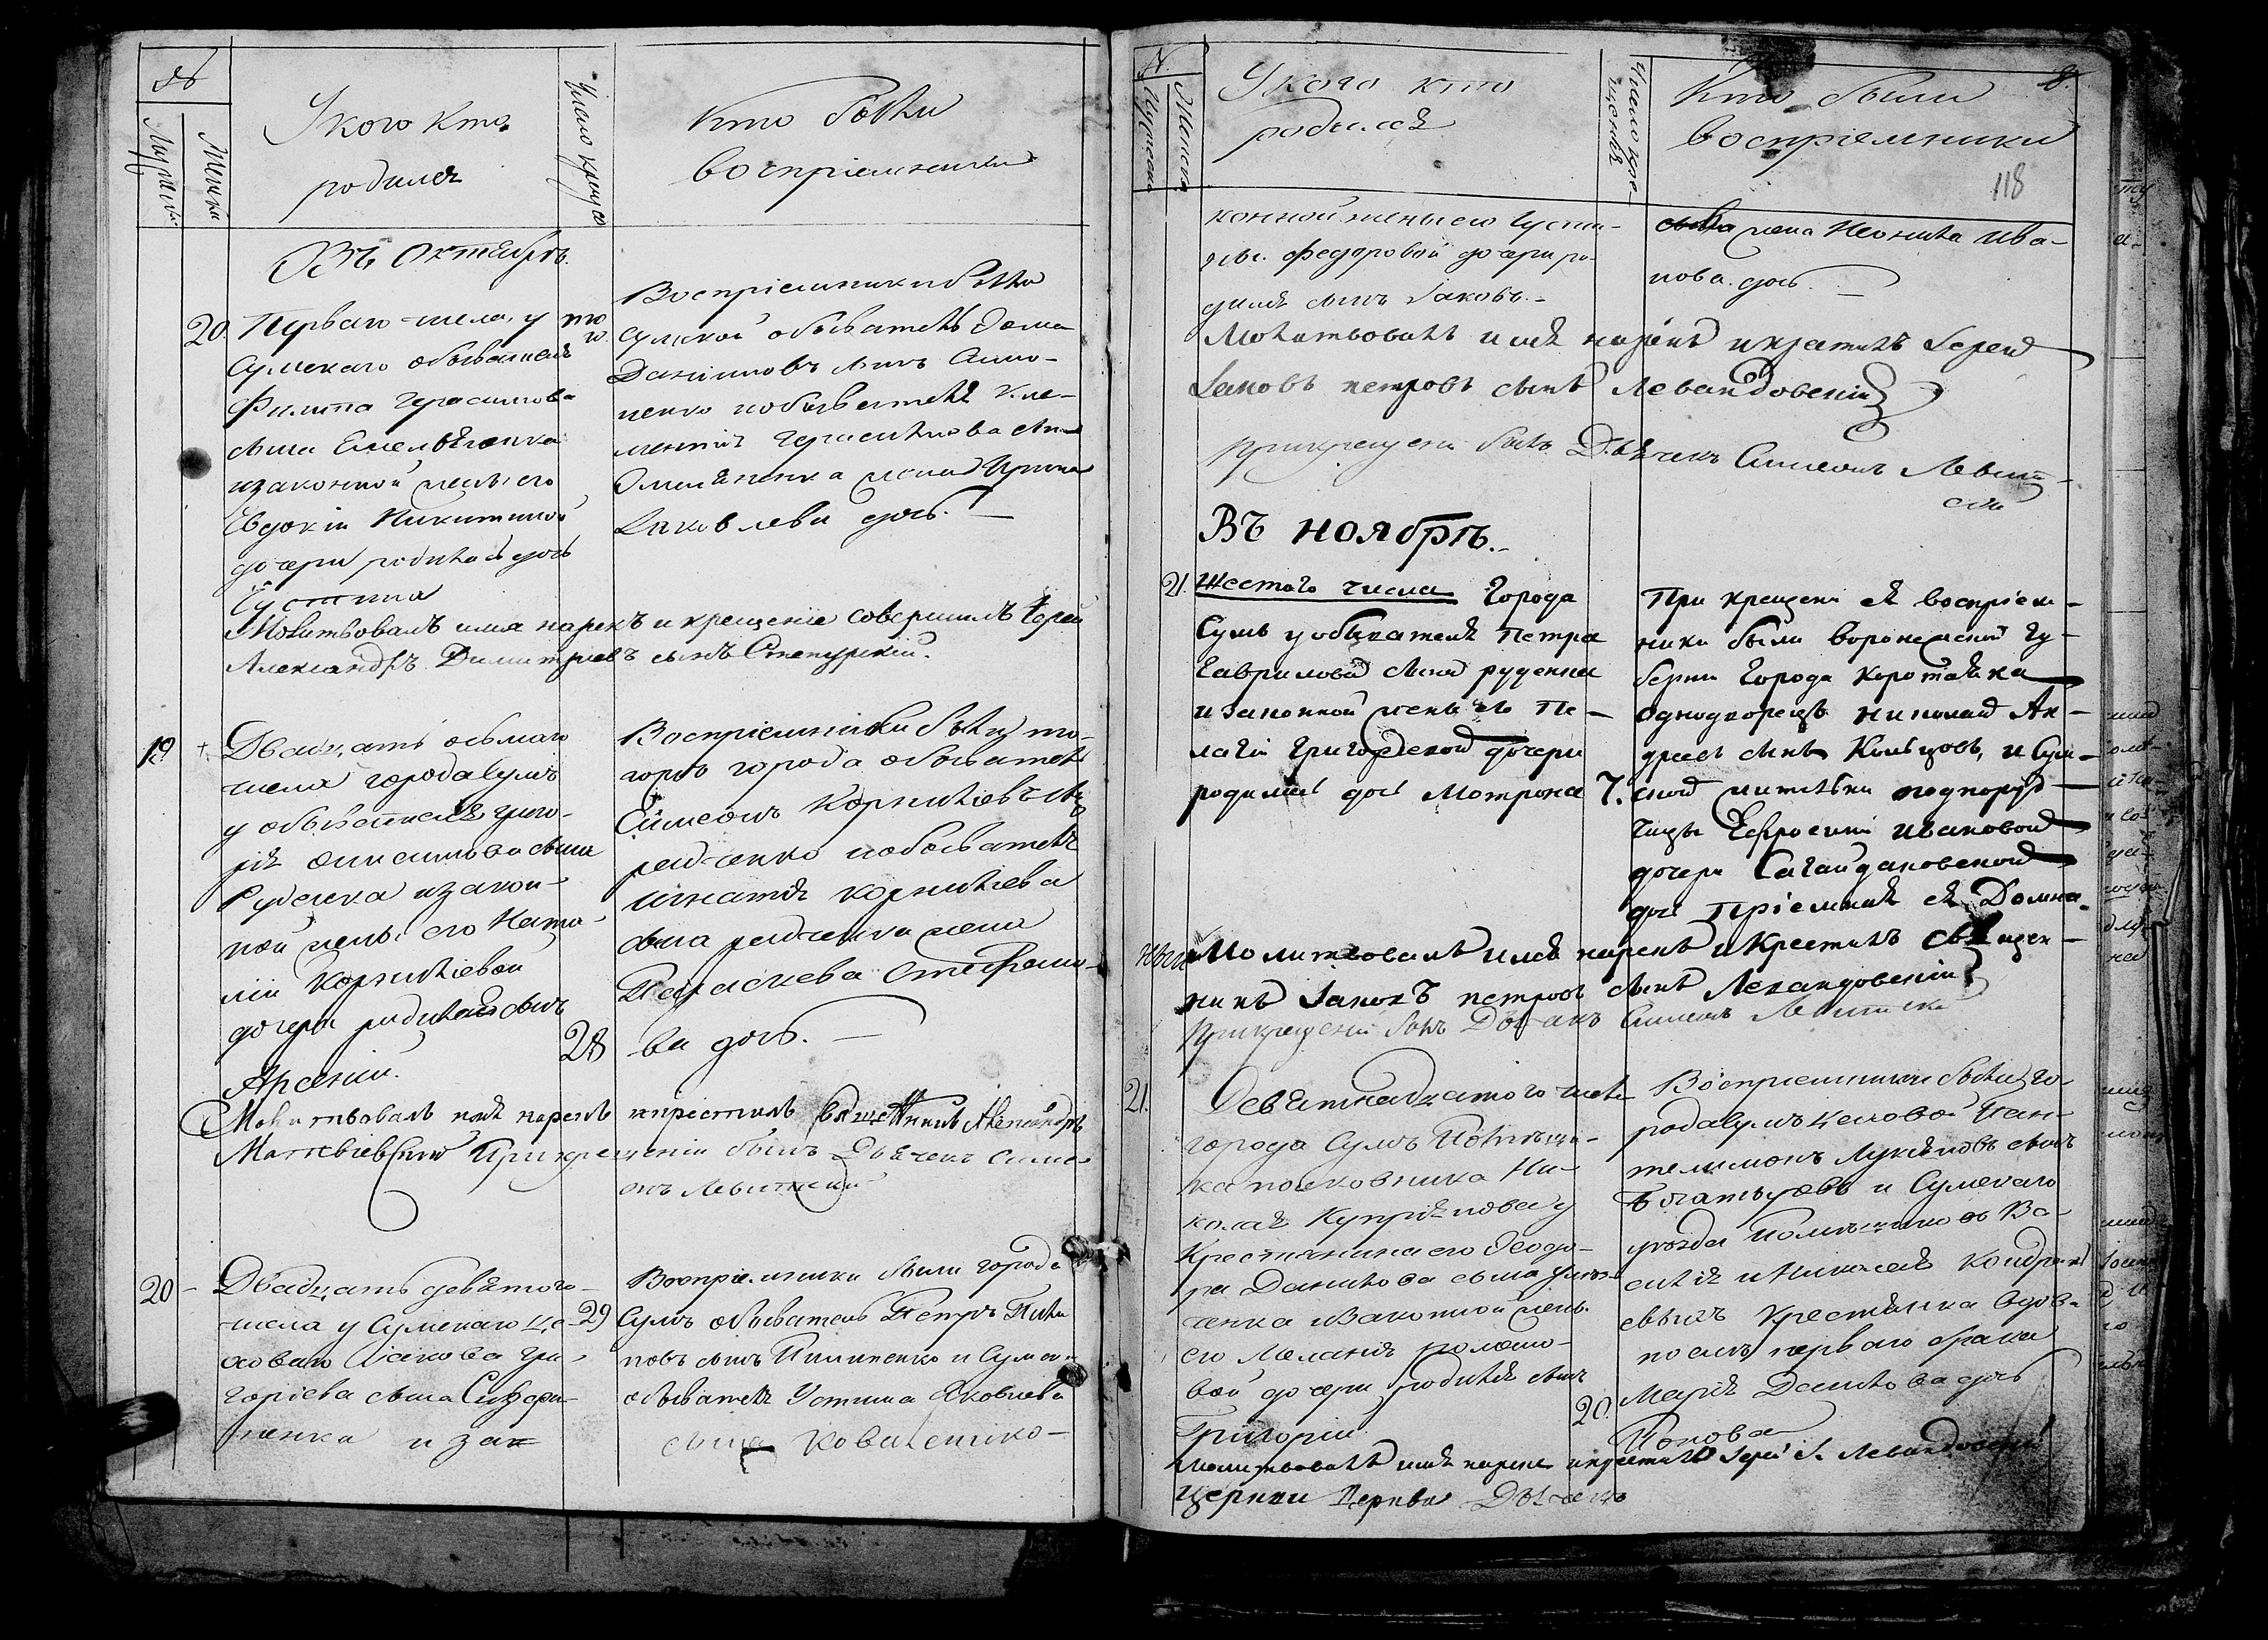 №
Мужеска
Женска
У кого кто
родился
Число крещенія
Кто были
воспріемники
Въ Октябрѣ.
20. Перваго числа, у
Сумскаго обывателя
Филипа Герасимова
сына Емельяненка
изаконной жены его
Евдокіи Никитиной
дочери родилась дочь
Іустина
того.
Воспріемники были
Сумской обыватель Фома
Даніиловъ сынъ Симо-
ненко иобывателя Кли-
ментія Герасимова сына
Омеляненка жена Ирина
Іаковлева дочь. —
Молитвовалъ имя нарекъ и крещеніе совершилъ Іерей
Александръ Димитріевъ сынъ Степурскій.
19 Двадцать осьмаго
числа города Сумъ
у обывателя Григо-
рія Онисимова сына
Руденка изакон-
ной жены его Ната-
ліи Корниліевой
дочери родился сынъ
Арсеній.
28
Воспріемники были то-
гожъ города обыватель
Симеонъ Корниліевъ сынъ
иобывателя
Игнатія Корниліева
сына жена
Параскева Стефано-
ва дочь. —
Молитвовалъ имя нарекъ икрестилъ Священникъ Александръ
Матвіевскій При крещеніи былъ Дьячекъ Симе-
онъ Левитскій
20 - Двадцать девятого
числа у Сумскаго це-
ховаго Іакова Гри-
горіева сына
ненка и зак
29
Воспріемники были города
Сумъ обыватель Петръ Фили
повъ сынъ Пилипенко и Сумска
обывателя Устина Яковлева
сына Коваленко-
№
Мужеска
Женска
У кого кто
родился
Число кре-
щенія
Кто были
воспріемники
8.
118
конной жены его Іусти-
ны Федоровой дочери ро-
дился сынъ Іаковъ. -
жена Неонила Ива-
нова дочь. —
Молитвовалъ имя нарекъ икрестилъ Іерей
Іаковъ Петровъ сынъ Левандовскій
При крещеніи былъ Дьячекъ Симеонъ Левит-
скій
Въ ноябрѣ.-
21. Шестого числа Города
Сумъ у обывателя Петра
Гаврилова сына Руденка
и законной жены его Пе-
лагіи Григорьевой дочери
родилась дочь Мотрона
7.
При крещеніи ея воспріем-
ники были Воронежской Гу-
берніи Города Коротояка
Однодворецъ Николай Ан-
дреевъ сынъ Кольцовъ, и Сум-
ской жительки подпоруч-
чицы Ефросиніи Ивановой
дочери Сагайдаковской
дочь Пріемная ея Домна.
Молитвовалъ имя нарекъ и Крестилъ Священ-
никъ Іаковъ Петровъ сынъ Левандовскій
При крещеніи былъ Дьячекъ Симеонъ Левитскій
21. Девятнадцатого числа
города Сумъ Помѣщи-
ка полковника Ни-
колая Купріянова у
Крестьянина его Феодо-
ра Данилова сына
ченка изаконной жены
его Меланіи
вой дочери родился сынъ
Григорій.
20.
Воспріемники были го-
рода Сумъ цеховой Пан-
телимонъ Лукяновъ сынъ
Богатыревъ и Сумскаго
уѣзда Помѣщиковъ Ва-
силія и Николая Кондрать
евыхъ Крестьянка вдова
послѣ перваго брака
Марія Данилова дочь
Попова
Молитвовалъ имя нарекъ икрестилъ Іерей І. Левандовскій